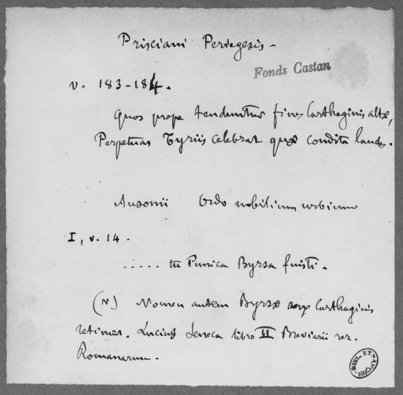 Prisciani Periegesis.
Fonds Castan
v. 183-184.
Quos prope tenduntur fines Carthaginis altæ,
Perpetuas Tyriis celebrat quæ condita laudes.
Ausonii Ordo nobilium urbium
I, v. 14.
..... tu Punica Byrsa fuisti.
(N) Nomen autem Byrsæ Carthaginis
retinet. Lucius Seneca libro II Breviarii rer.
Romanarum.
BIBL. BESANÇON